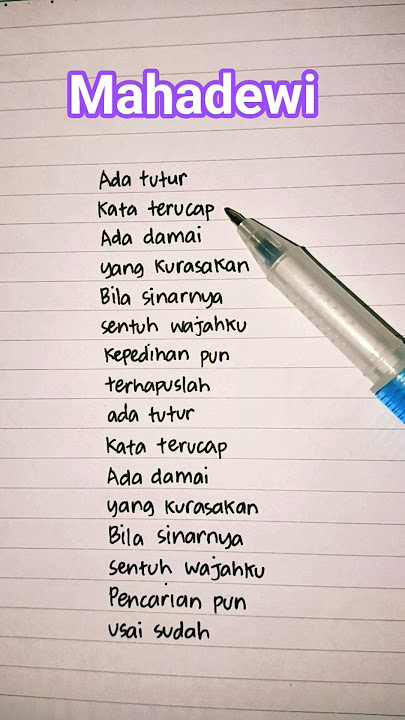 Mahadewi
Ada tutur
Kata terucap
Ada damai
yang kurasakan
Bila sinarnya
sentuh wajahku
kepedihan pun
terhapuslah
ada tutur
Kata terucap
Ada damai
yang kurasakan
Bila sinarnya
sentuh wajahku
Pencarian pun
usai sudah